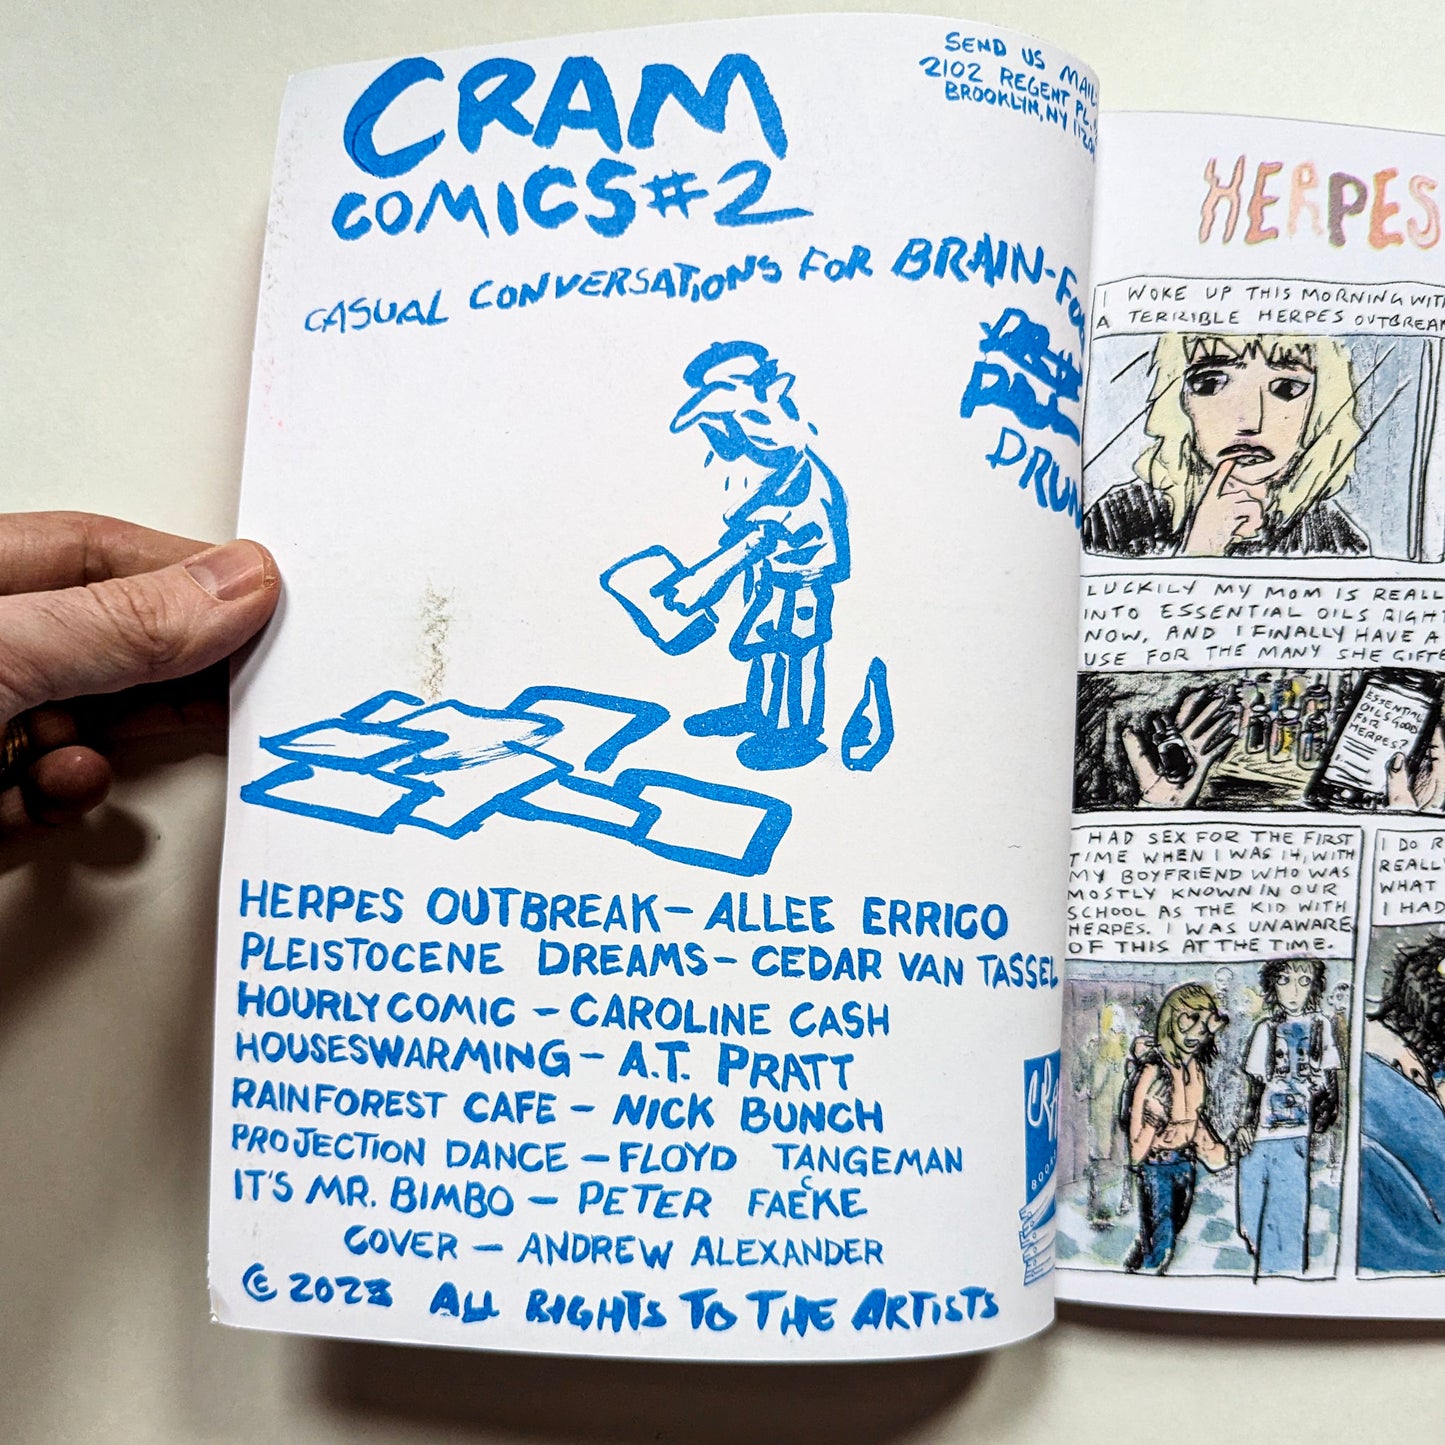 CRAM
COMICS #2
SEND US MAIL
2102 REGENT PL.
BROOKLYN, NY
CASUAL CONVERSATIONS FOR BRAIN-
HERPES OUTBREAK - ALLEE ERRICO
PLEISTOCENE DREAMS - CEDAR VAN TASSEL
HOURLY COMIC - CAROLINE CASH
HOUSESWARMING - A.T. PRATT
RAINFOREST CAFE - NICK BUNCH
PROJECTION DANCE - FLOYD TANGEMAN
IT'S MR. BIMBO - PETER FAECKE
COVER - ANDREW ALEXANDER
© 2023 ALL RIGHTS TO THE ARTISTS
HERPES
I WOKE UP THIS MORNING WITH
A TERRIBLE HERPES OUTBREAK
LUCKILY MY MOM IS REALL
INTO ESSENTIAL OILS RIGHT
NOW, AND I FINALLY HAVE A
USE FOR THE MANY SHE GIFTE
ESSENTIAL
OILS GOOD
FOR
HERPES?
I HAD SEX FOR THE FIRST
TIME WHEN I WAS 14, WITH
MY BOYFRIEND WHO WAS
MOSTLY KNOWN IN OUR
SCHOOL AS THE KID WITH
HERPES. I WAS UNAWARE
OF THIS AT THE TIME.
I DO R
REALL
WHAT
I HAD